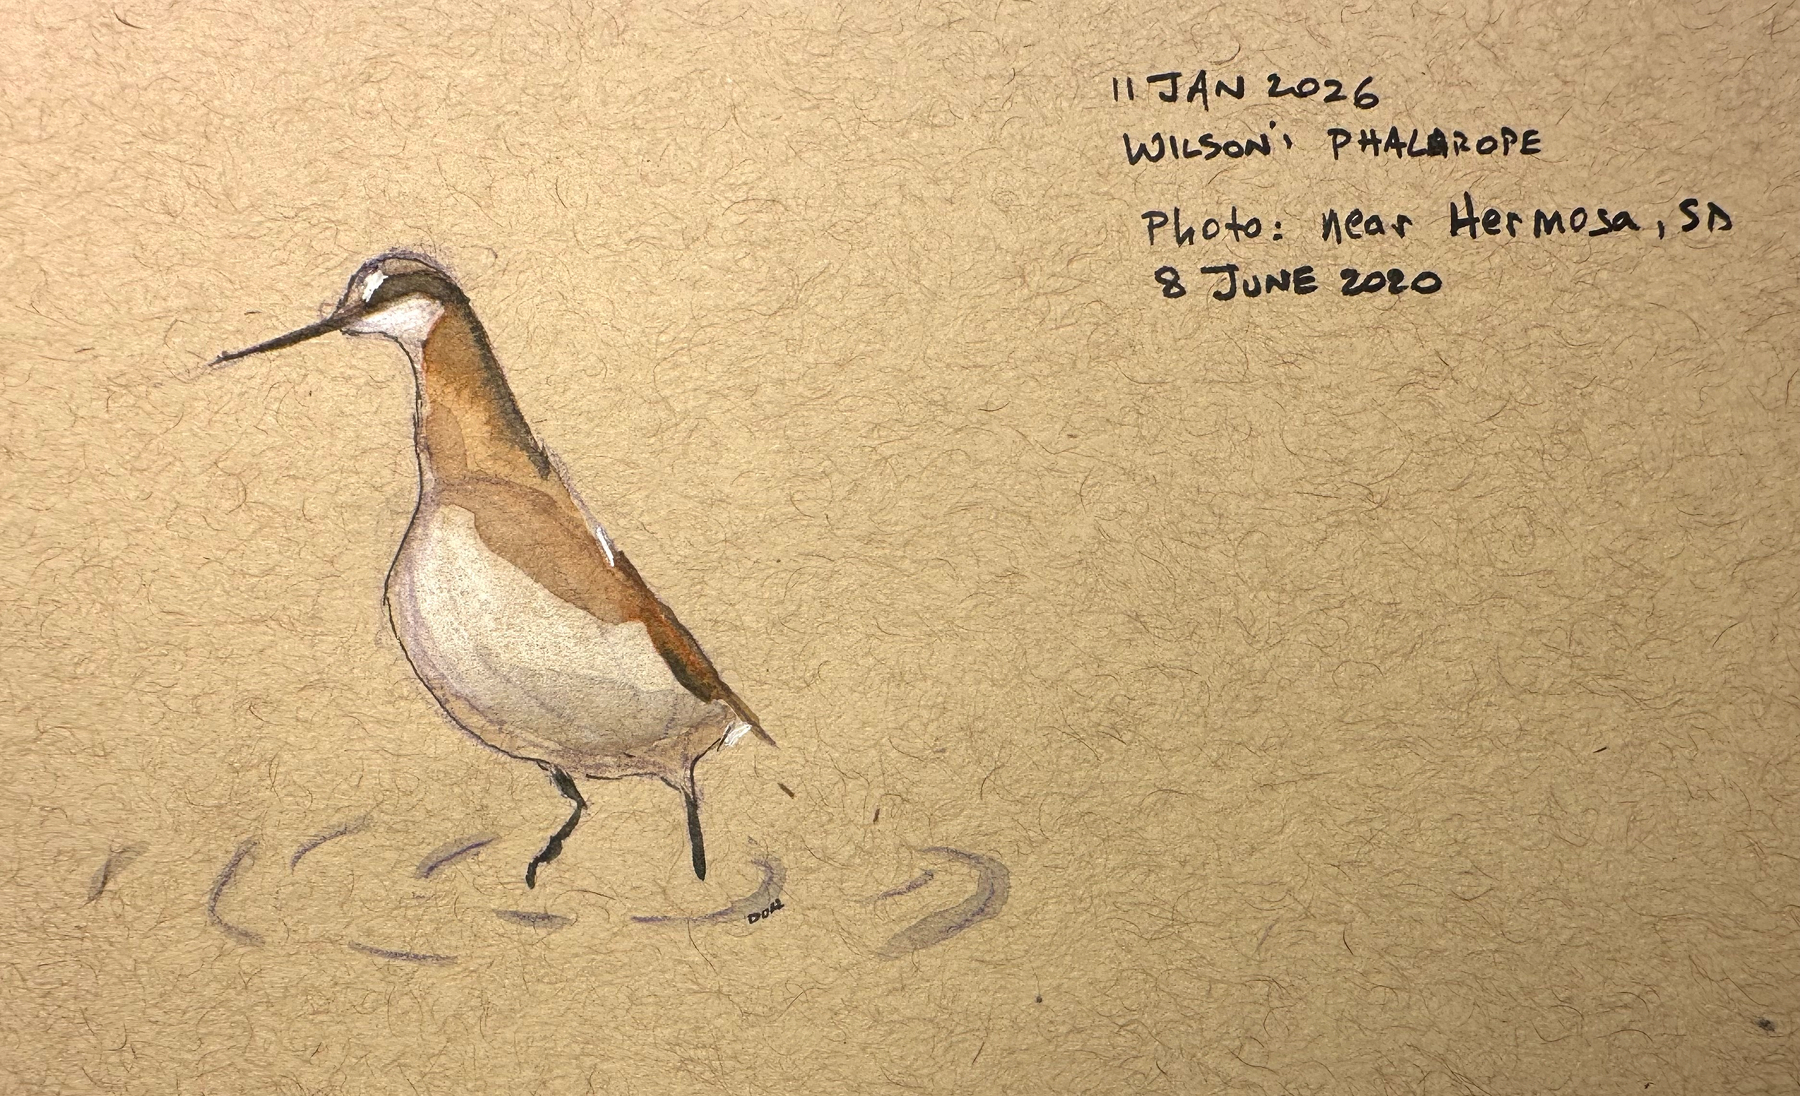 11 JAN 2026
WILSON's PHALAROPE
Photo: near Hermosa, SD
8 JUNE 2020